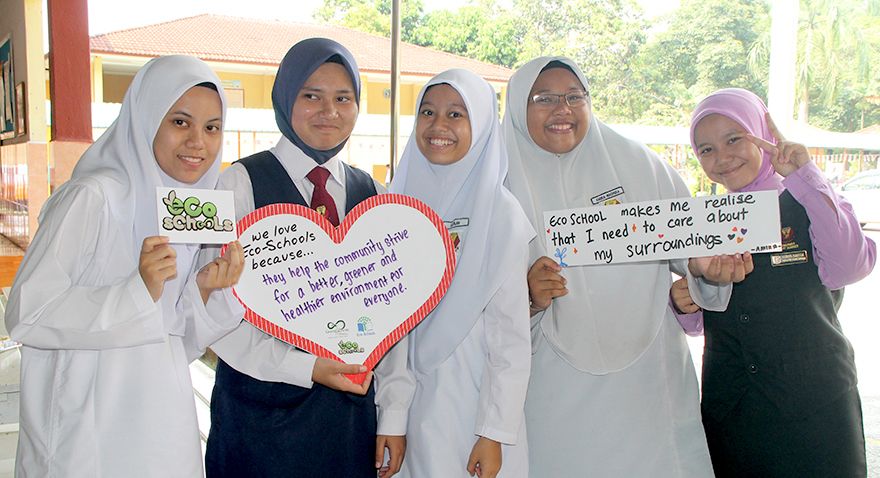 eco
schools
We love
Eco-Schools
because...
they help the community strive
for a better, greener and
healthier environment for
everyone.
eco
schools
ECO SCHOOL makes me realise
that I need to care about
my surroundings
- Amin a.